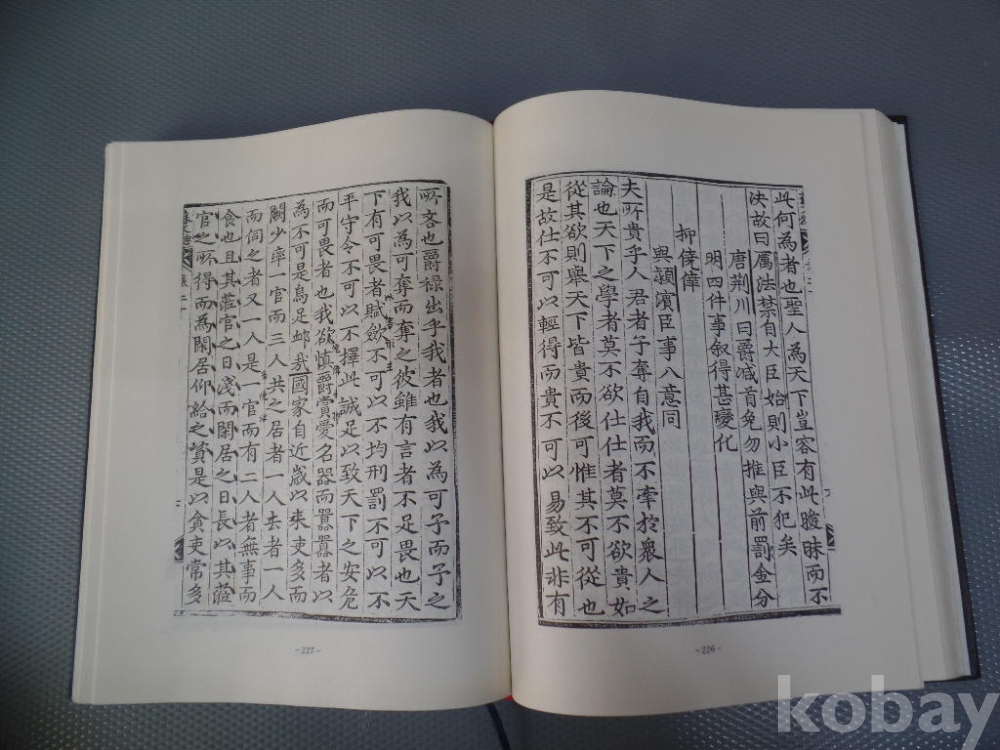 此何為者也聖人為天下豈容有此曖昧而不
决故曰厲法禁自大臣始則小臣不犯矣
唐荊川曰爵减首免勿推與前罰金分
明四件事叙得甚變化
抑僥倖
與潁濱臣事八意同
夫所貴乎人君者子奪自我而不牽扵衆人之
論也天下之學者莫不欲仕仕者莫不欲貴如
從其欲則舉天下皆貴而後可惟其不可從也
是故仕不可以輕得而貴不可以易致此非有
-226-
所吝也爵禄出乎我者也我以為可子而子之
我以為可奪而奪之彼雖有言者不足畏也天
下有可畏者賦斂不可以不均刑罰不可以不
平守令不可以不擇此誠足以致天下之安危
而可畏者也我欲慎爵賞愛名器而囂囂者以
為不可是烏足邺我國家自近歲以来吏多而
闕少率一官而三人共之居者一人去者一人
而伺之者又一人是一官而有二人者無事而
食也且其莅官之日淺而閑居之日長以其莅
官之所得而為閑居仰給之資是以貪吏常多
-227-
kobay